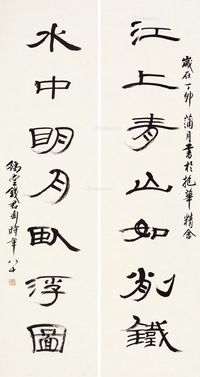 歲在丁卯 蒲月書於抱華精舍
江上青山如削鐵
水中眀月臥浮圖
豫堂錢君匋時年八十